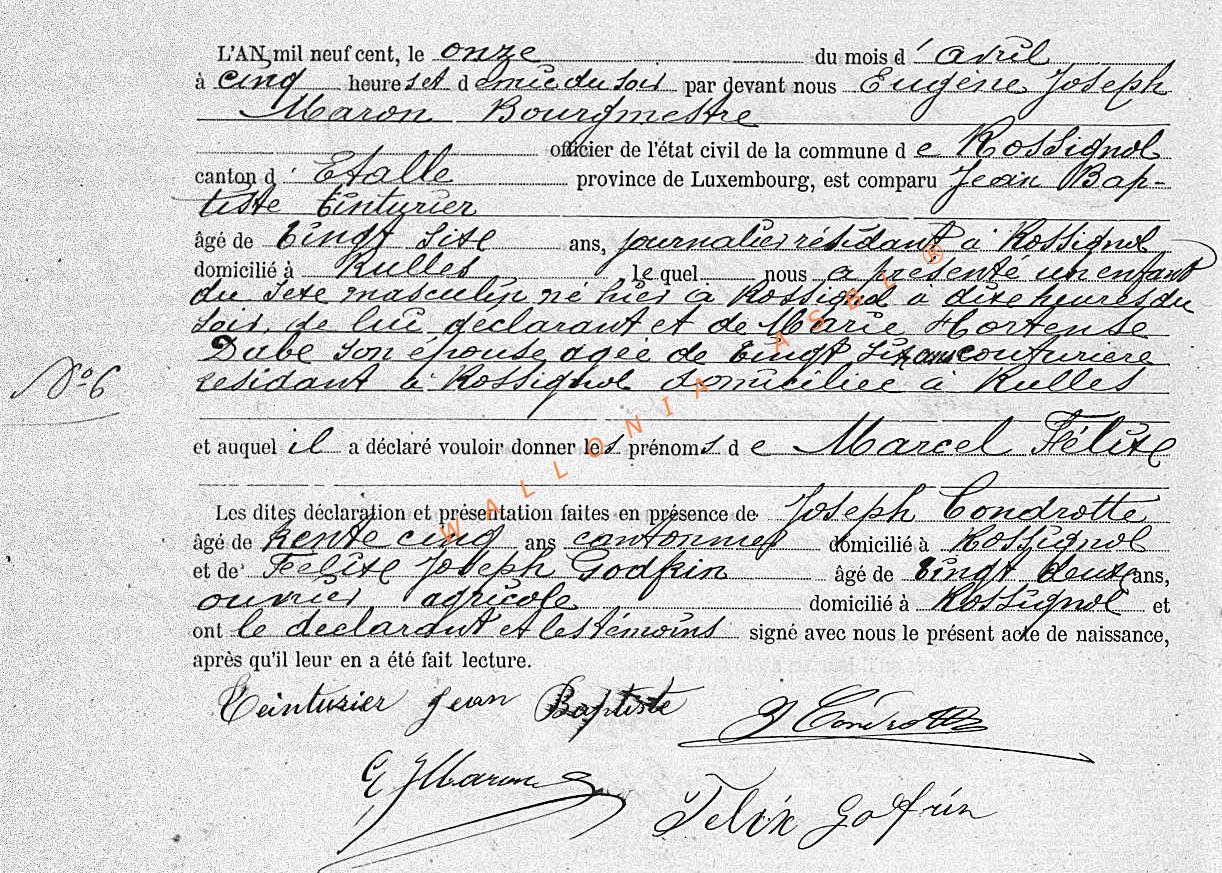 L'AN mil neuf cent, le onze du mois d' avril
à cinq heures et demie du soir par devant nous Eugène Joseph
Maron Bourgmestre
officier de l'état civil de la commune de Rossignol
canton d' Etalle province de Luxembourg, est comparu Jean Bap-
tiste Tinturier
âgé de vingt sixe ans, journalier résidant à Rossignol
domicilié à Rulles lequel nous a présenté un enfant
du sexe masculin né hier à Rossignol à dixe heures du
soir, de lui déclarant et de Marie Hortense
Dabe son épouse agée de vingt six ans couturière
residant à Rossignol domiciliée à Rulles
No 6
et auquel il a déclaré vouloir donner les prénoms de Marcel Félixe
Les dites déclaration et présentation faites en présence de Joseph Condrotte
âgé de trente cinq ans cantonnier domicilié à Rossignol
et de Félixe Joseph Godfrin âgé de vingt deuxe ans,
ouvrier agricole domicilié à Rossignol et
ont le declarant et les témoins signé avec nous le présent acte de naissance,
après qu'il leur en a été fait lecture.
Teinturier Jean Baptiste J Condrotte
E J Maron
Felix Gofrin
WALLONIA ASBL ®